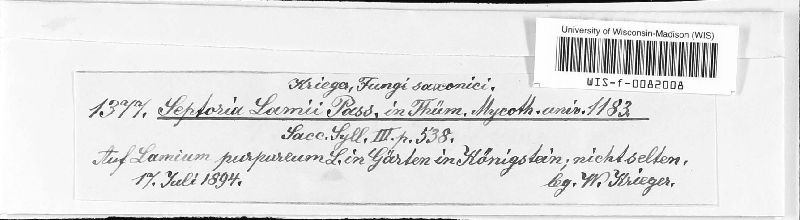 University of Wisconsin-Madison (WIS)
WIS-f-0082008
Krieger, Fungi saxonici.
1377. Septoria Lamii Pass. in Thüm. Mycoth. univ. 1183.
Sacc. Syll. III. p. 538.
Auf Lamium purpureum L. in Gärten in Königstein, nicht selten.
17. Juli 1894. leg. W. Krieger.